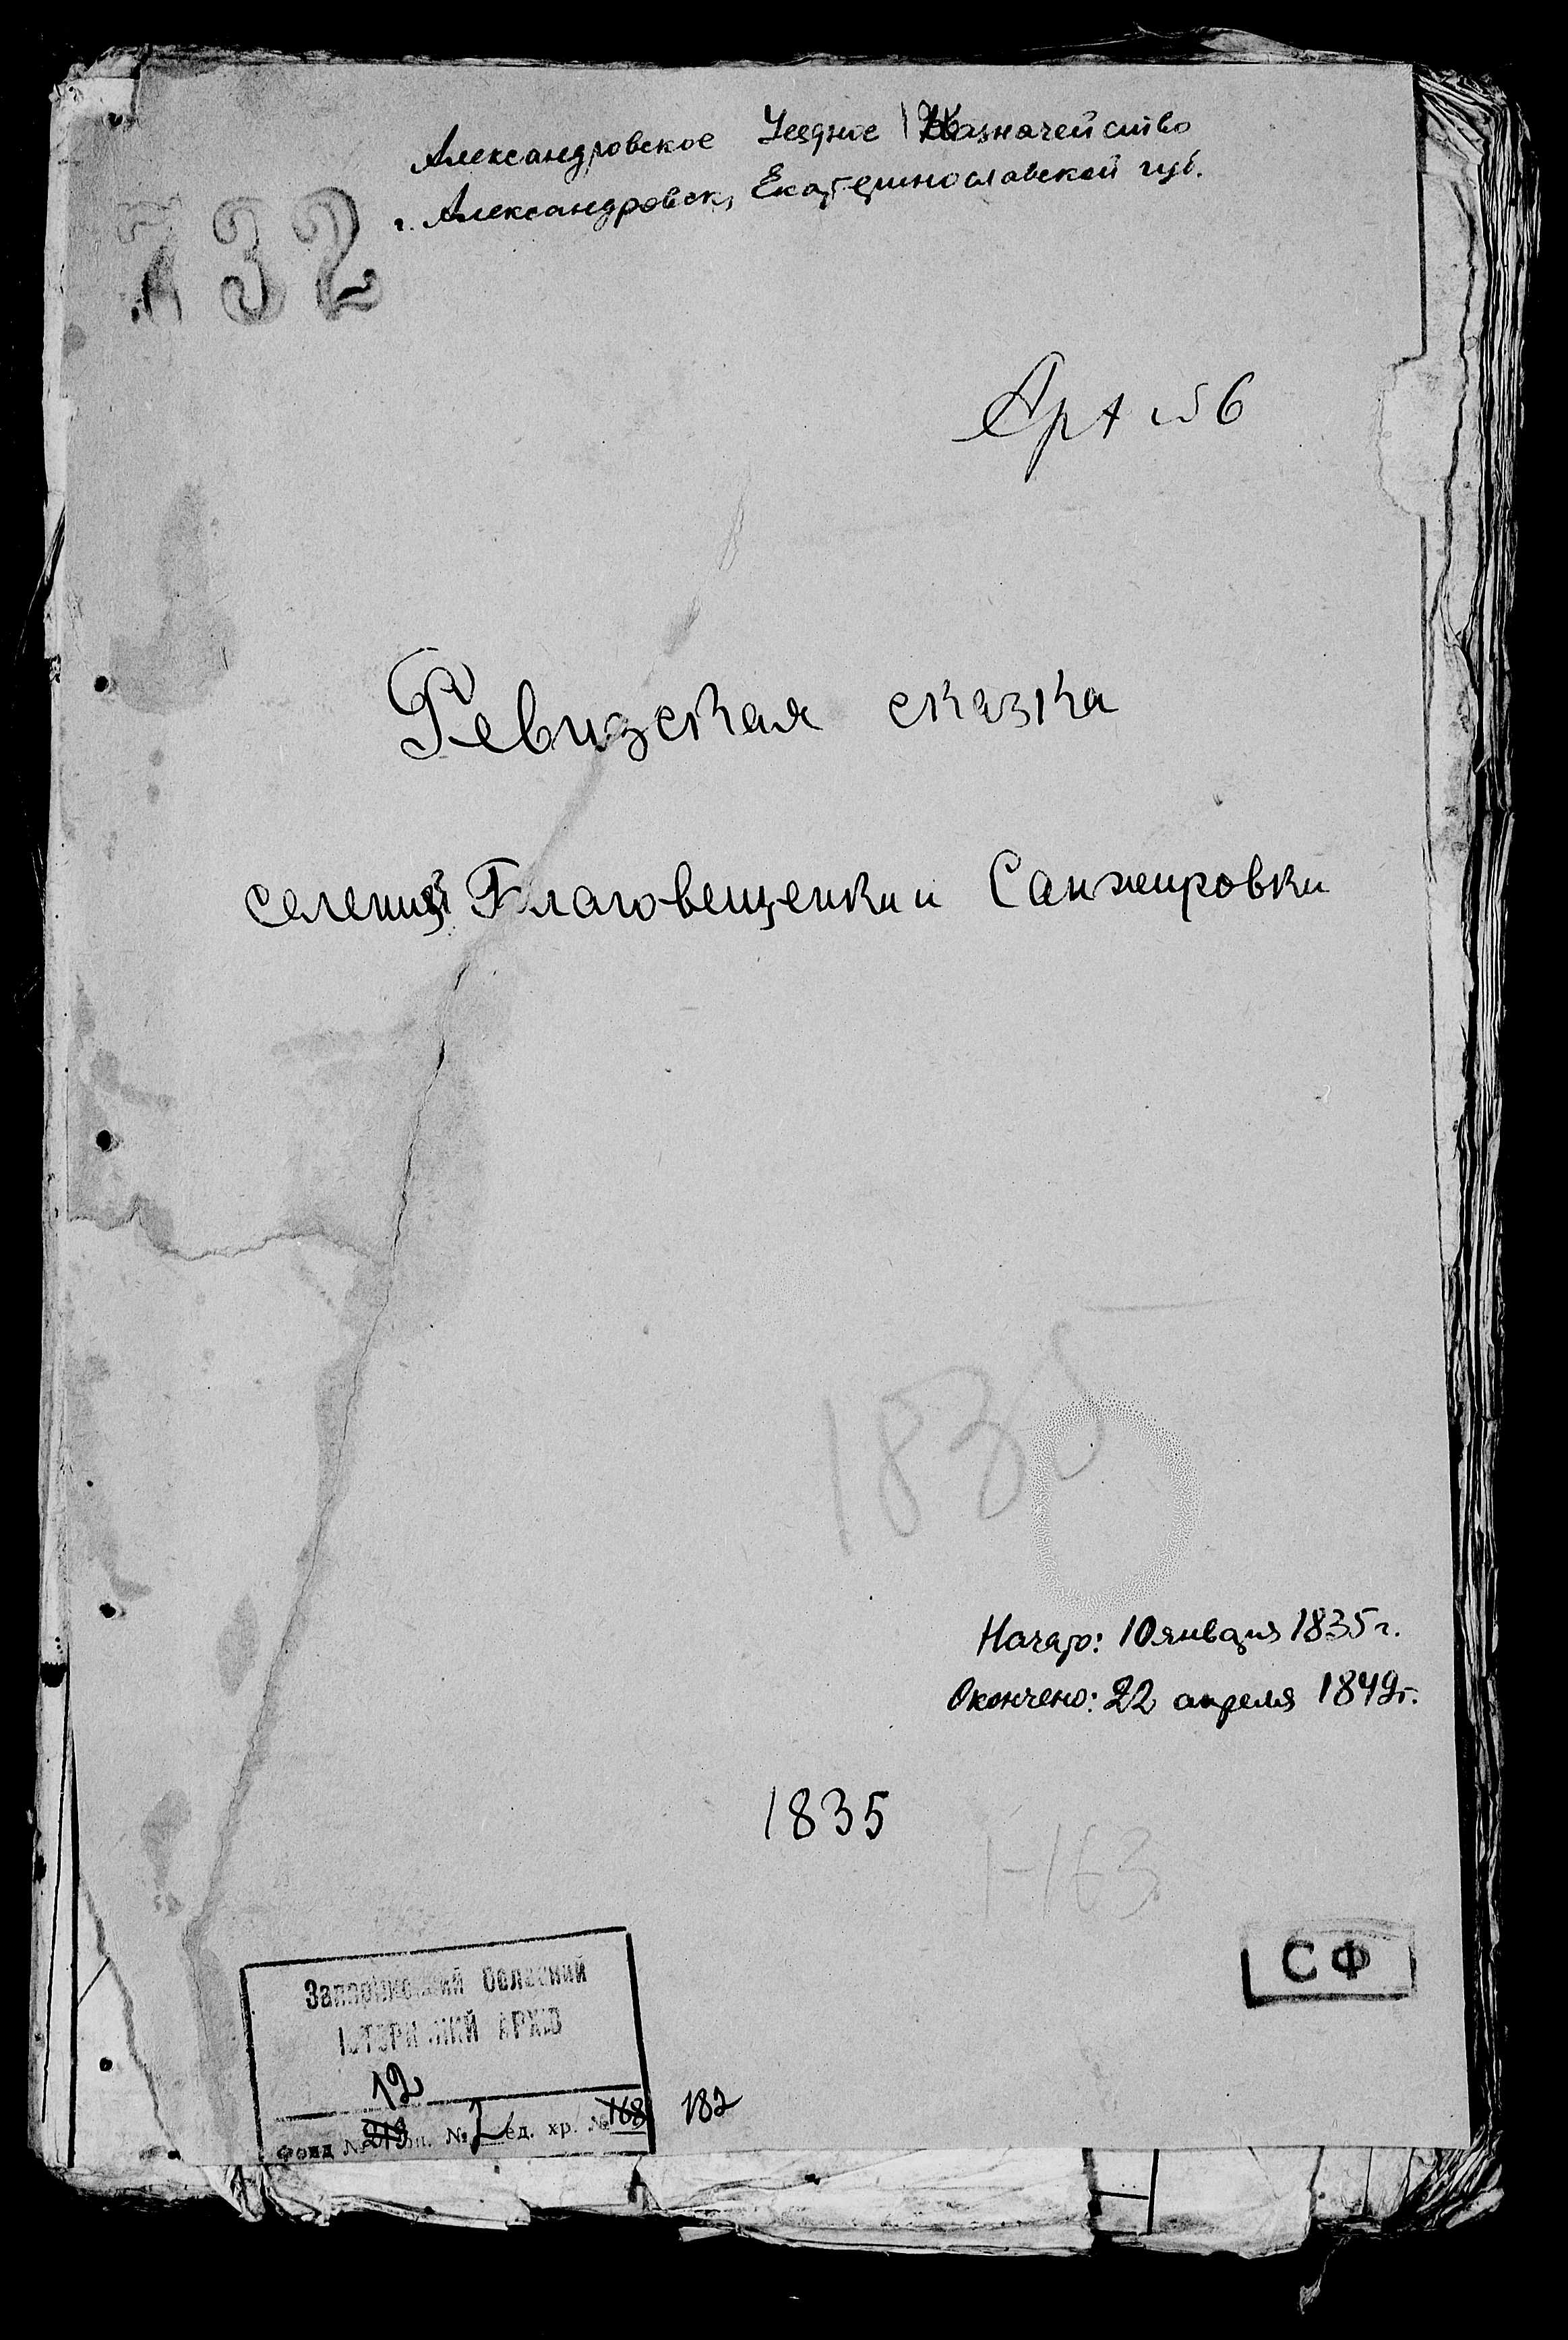 Александровское Уездное Казначейство
г. Александровск, Екатеринославской губ.
732
Ревизская сказка
селений Благовещенки и Санжеировки
1835
Начато: 10 января 1835 г.
Окончено: 22 апреля 1849 г.
1835
1-163
СФ
Запорізький Обласний
ІСТОРИЧНИЙ АРХІВ
12
Фонд № 213 оп. № 2 ед. хр. № 168 182